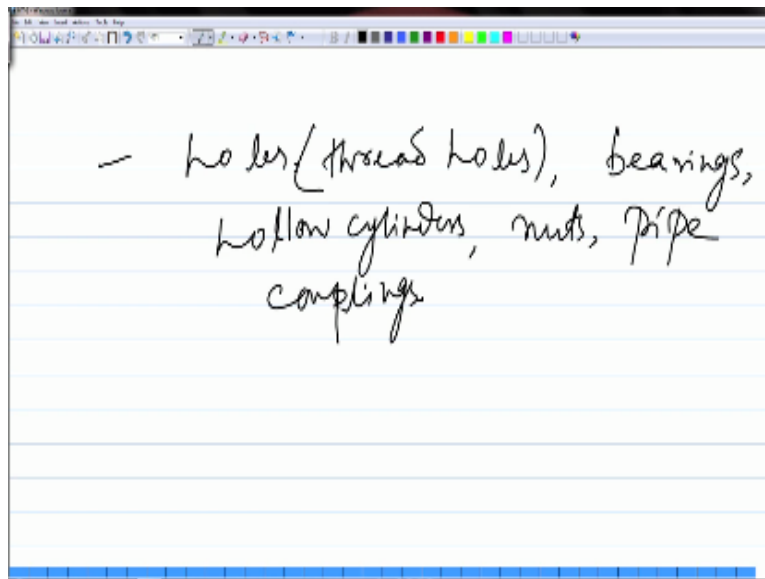 – holes (thread holes), bearings,
hollow cylinders, nuts, pipe
couplings